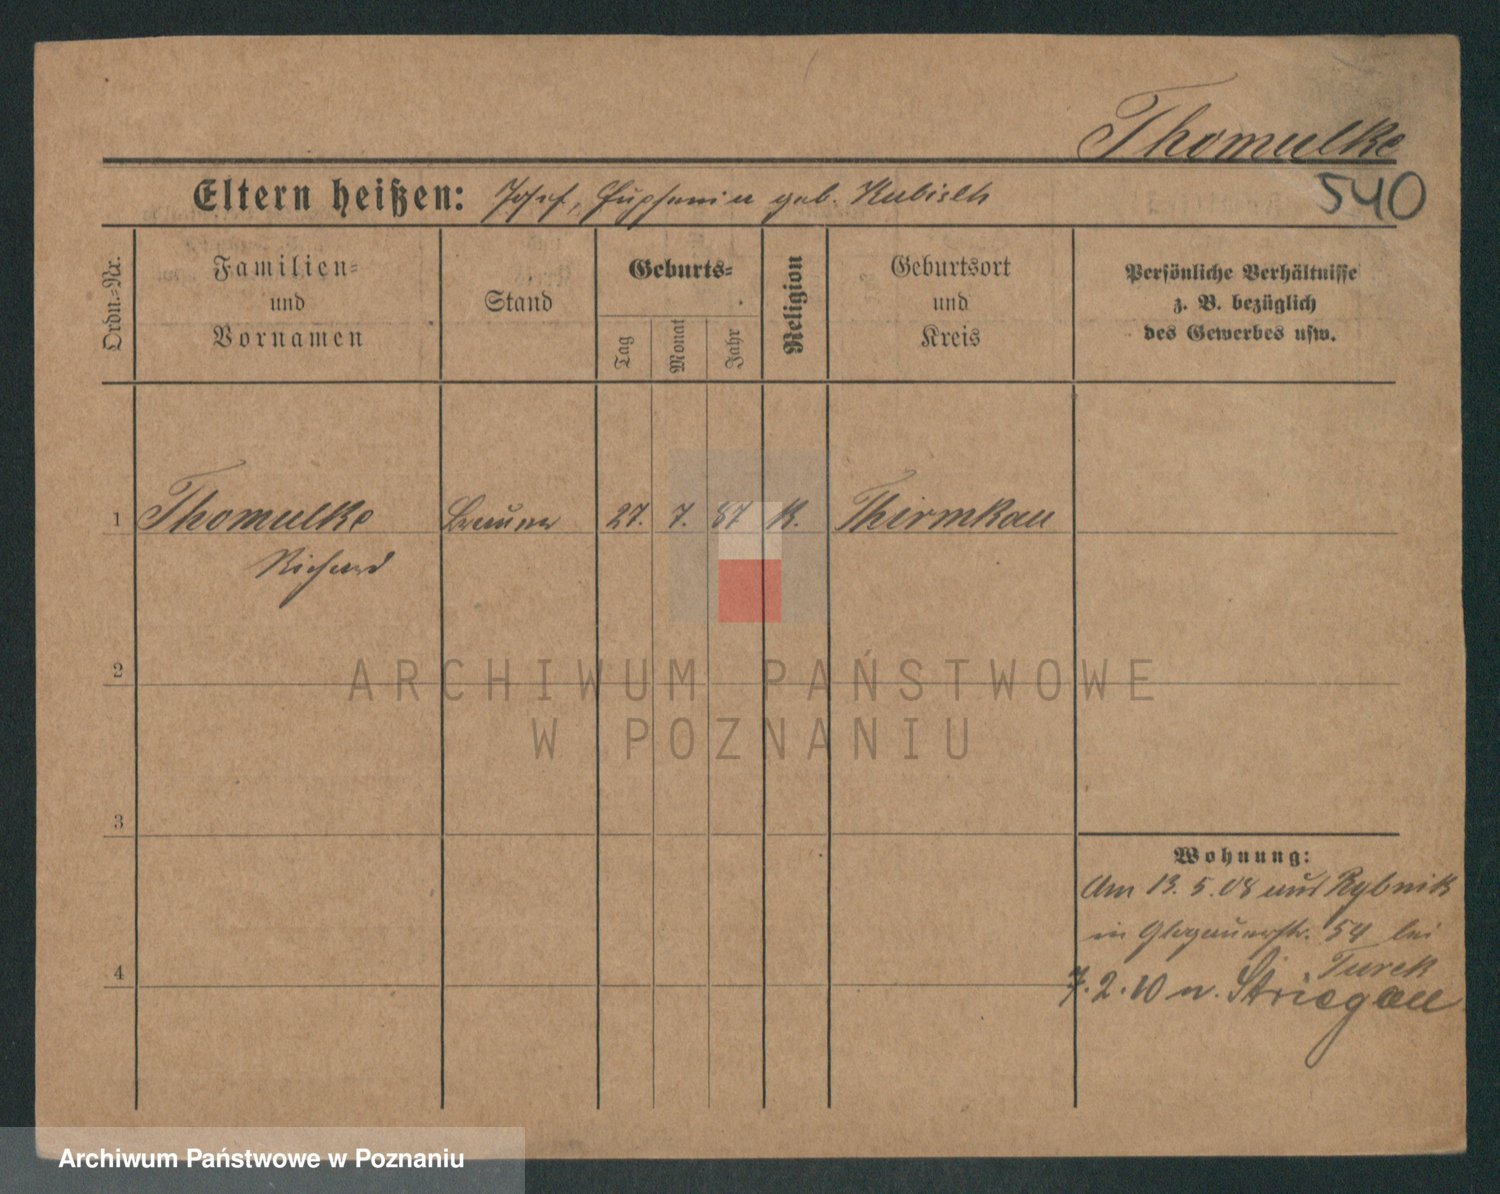 Thomulke
540
Eltern heißen: Josef, Euphemia geb. Kubisch
Ordn.-Nr.
Familien-
und
Vornamen
Stand
Geburts-
Tag
Monat
Jahr
Religion
Geburtsort
und
Kreis
Persönliche Verhältnisse
z. B. bezüglich
des Gewerbes usw.
1 Thomulke Brauer 27. 7. 87 K. Thirmkau
Richard
2
3
4
Wohnung:
Am 13.5.08 aus Rybnik
in Glogauerstr. 54 bei
Turek
7.2.10 n. Striegau
ARCHIWUM PAŃSTWOWE
W POZNANIU
Archiwum Państwowe w Poznaniu